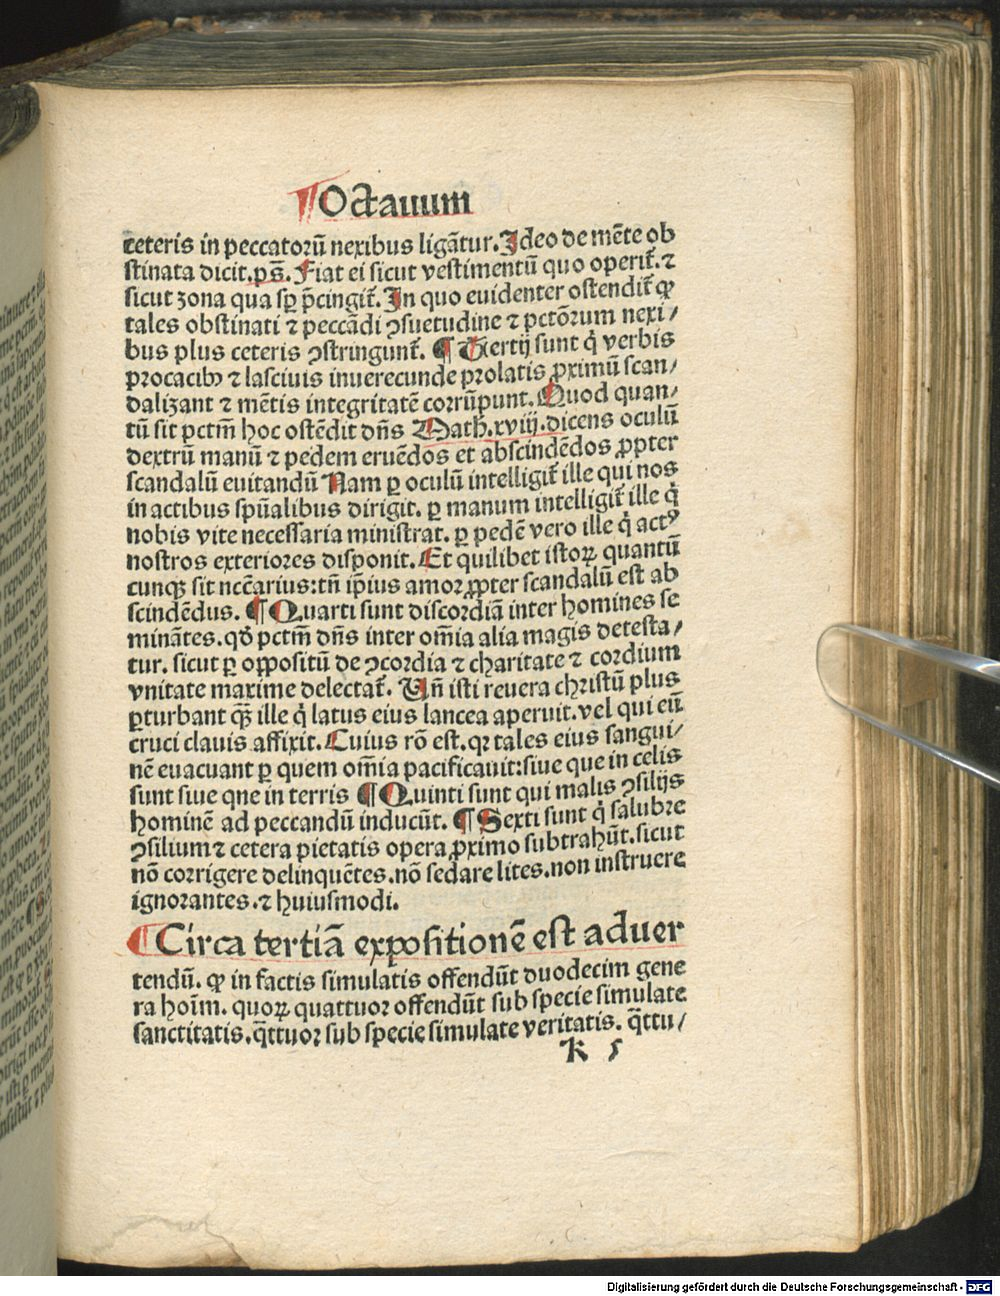 ¶ Octauum
ceteris in peccatorū nexibus ligātur. Ideo de mēte ob
stinata dicit. ps̄. Fiat ei sicut vestimentū quo operit̄. ⁊
sicut zona qua sꝑ p̄cingit̄. In quo euidenter ostendit̄ ꝙ
tales obstinati ⁊ peccādi ꝯsuetudine ⁊ pctōrum nexi/
bus plus ceteris ꝯstringunt̄. ¶ Tertij sunt q̇ verbis
procacibꝫ ⁊ lasciuis inuerecunde prolatis ꝓximū scan/
dalizant ⁊ mētis integritatē corrūpunt. Quod quan/
tū sit pctm̄ hoc ostēdit dn̄s Math̄. xviij. dicens oculū
dextrū manū ⁊ pedem eruēdos et abscindēdos ꝓpter
scandalū euitandū Nam ꝑ oculū intelligit̄ ille qui nos
in actibus spūalibus dirigit. ꝑ manum intelligit̄ ille q̇
nobis vite necessaria ministrat. ꝑ pedē vero ille q̇ actꝰ
nostros exteriores disponit. Et quilibet istoꝝ quantū
cunqꝫ sit nccārius: tn̄ ip̄ius amor ꝓpter scandalū est ab
scindēdus. ¶ Quarti sunt discordiā inter homines se
minātes. qd̄ pctm̄ dn̄s inter om̄ia alia magis detesta/
tur. sicut ꝑ oppositū de ꝯcordia ⁊ charitate ⁊ cordium
vnitate maxime delectat̄. Un̄ isti reuera christū plus
ꝑturbant qꝫ̄ ille q̇ latus eius lancea aperuit. vel qui eū
cruci clauis affixit. Cuius rō est. qꝛ tales eius sangui/
nē euacuant ꝑ quem om̄ia pacificauit: siue que in celis
sunt siue qne in terris ¶ Quinti sunt qui malis ꝯsilijs
hominē ad peccandū inducūt. ¶ Sexti sunt q̇ salubre
ꝯsilium ⁊ cetera pietatis opera ꝓximo subtrahūt. sicut
nō corrigere delinquētes. nō sedare lites. non instruere
ignorantes. ⁊ huiusmodi.
¶ Circa tertiā expositionē est aduer
tendū. ꝙ in factis simulatis offendūt duodecim gene
ra hoīm. quoꝝ quattuor offendūt sub specie simulate
sanctitatis. q̄ttuor sub specie simulate veritatis. q̄ttu/
K 5
Digitalisierung gefördert durch die Deutsche Forschungsgemeinschaft - DFG